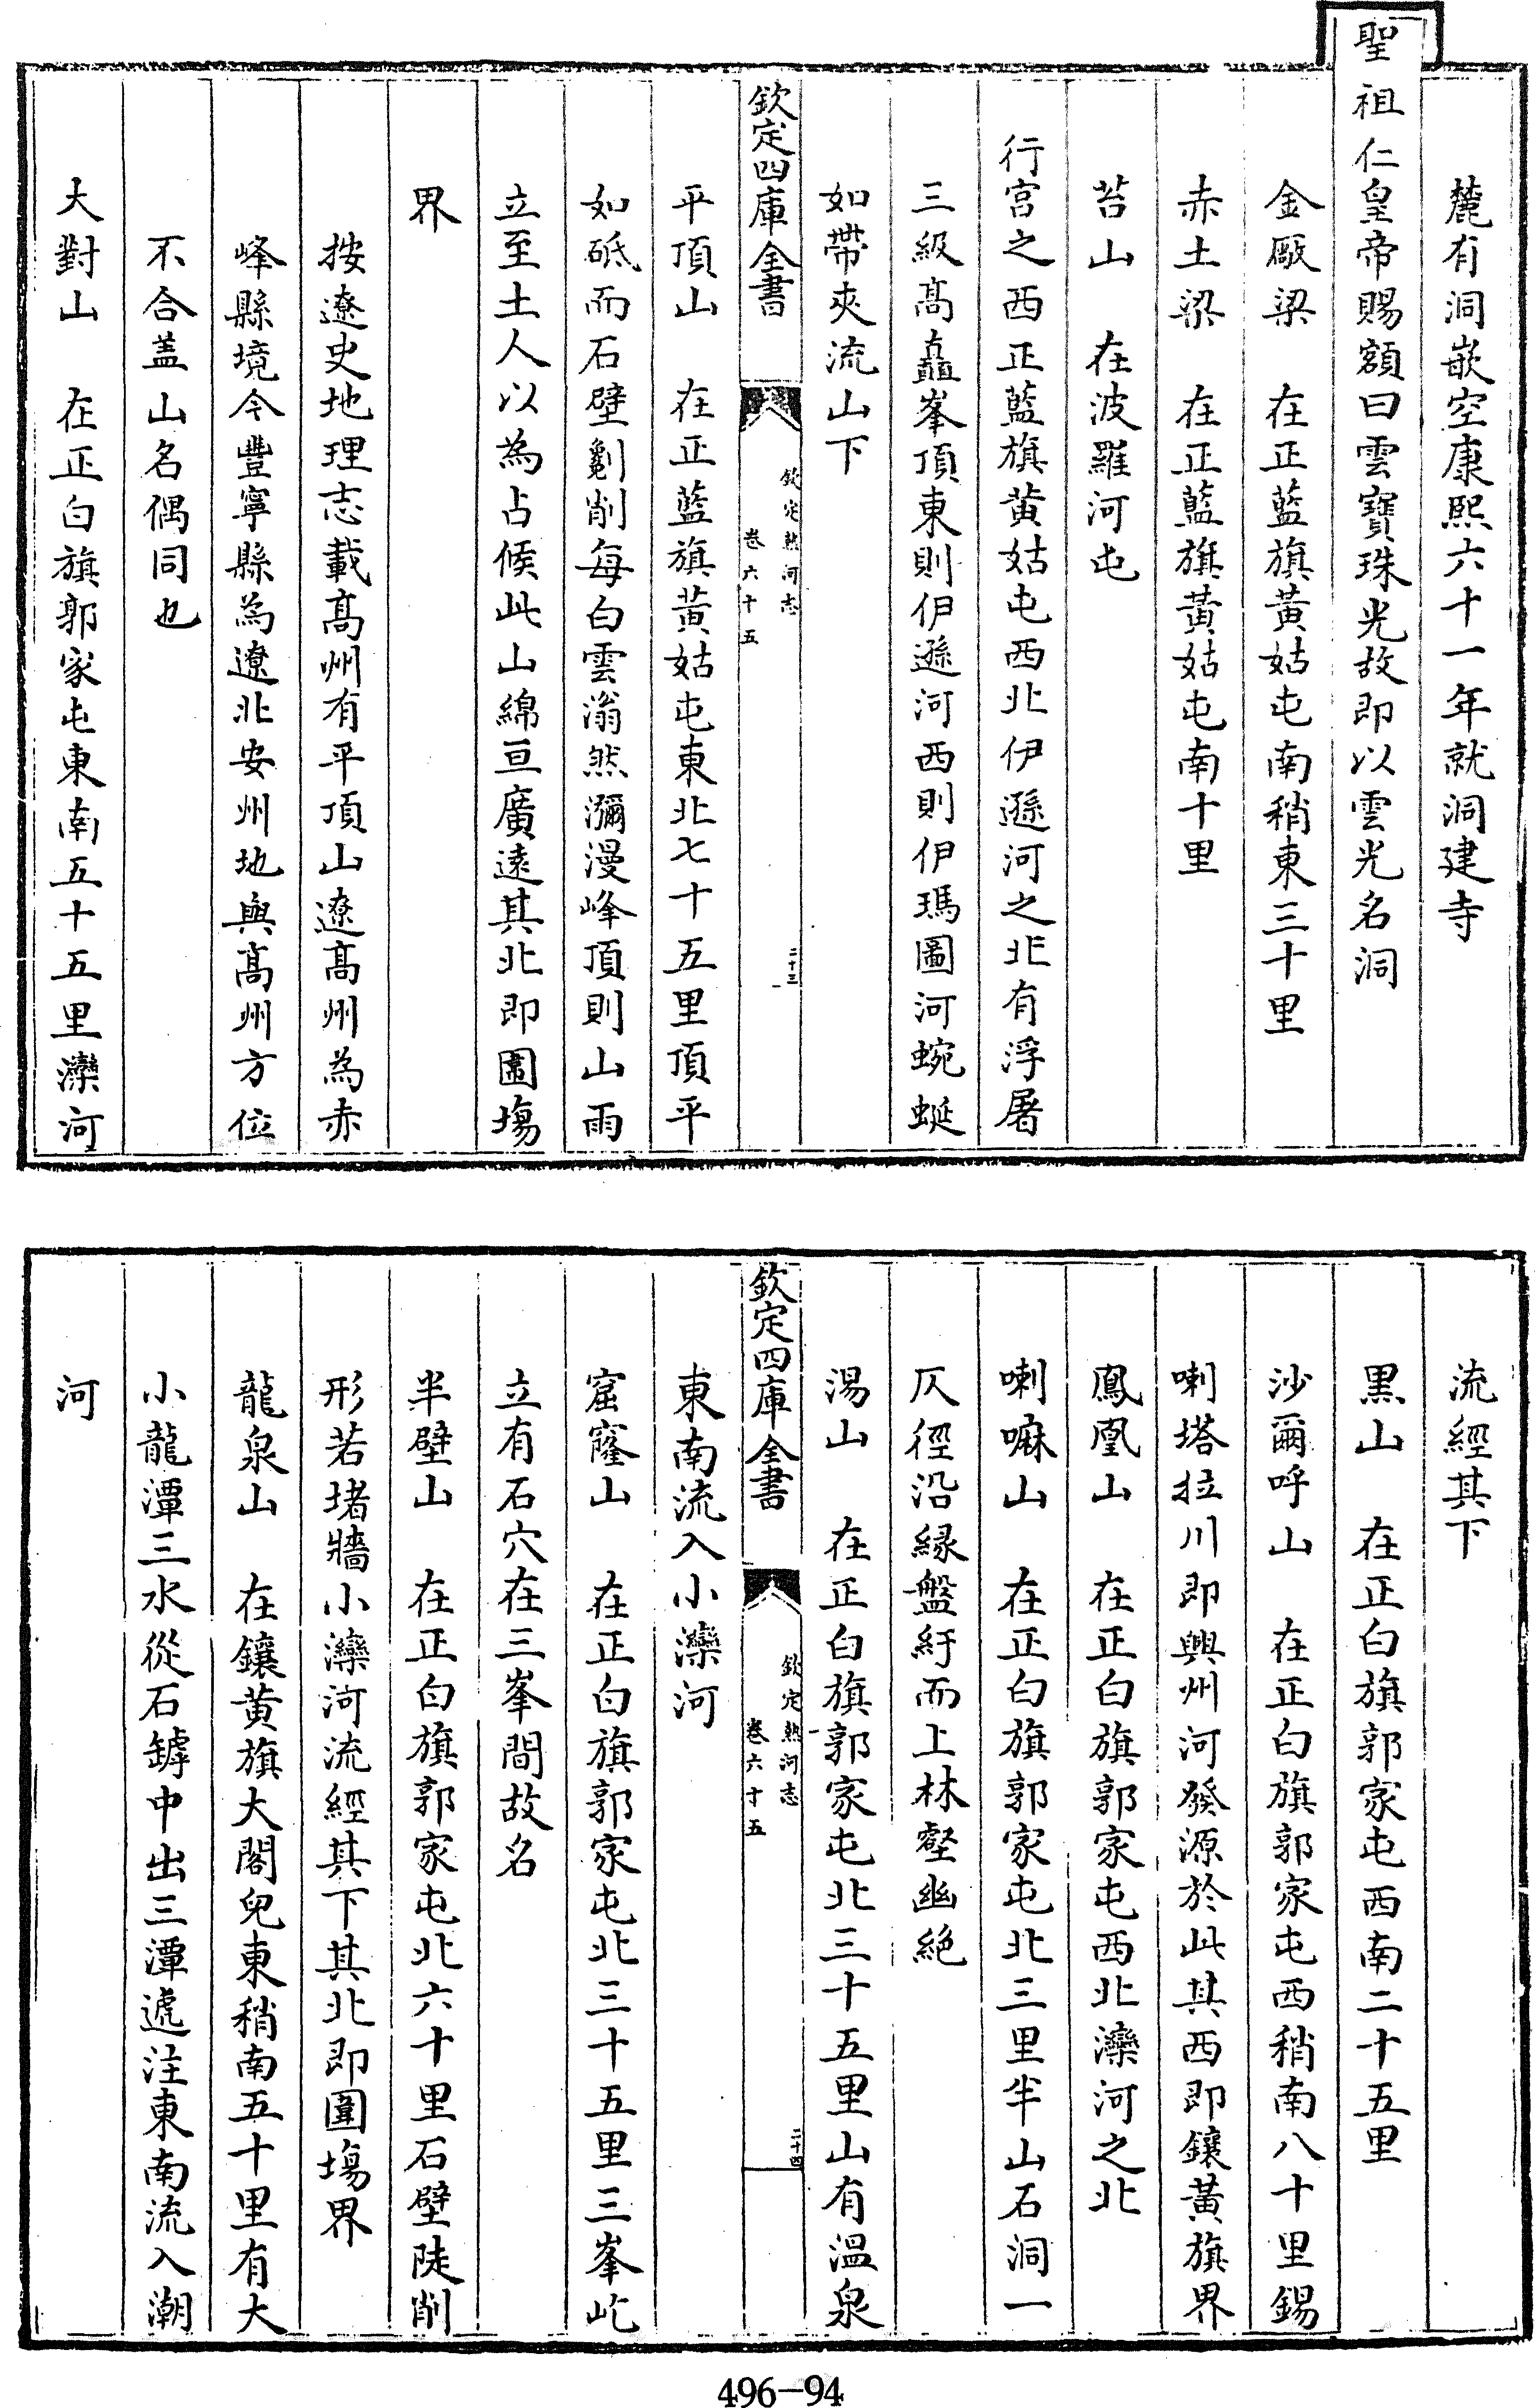 麓有洞嵌空康熙六十一年就洞建寺
聖祖仁皇帝賜額曰雲寶珠光故即以雲光名洞
金厰梁　在正藍旗黃姑屯南稍東三十里
赤土梁　在正藍旗黃姑屯南十里
苔山　在波羅河屯
行宫之西正藍旗黄姑屯西北伊遜河之北有浮屠
三級髙矗峯頂東則伊遜河西則伊瑪圖河蜿蜒
如帶夾流山下
欽定四庫全書
欽定熱河志
卷六十五
二十三
平頂山　在正藍旗黃姑屯東北七十五里頂平
如砥而石壁劖削每白雲滃然瀰漫峰頂則山雨
立至土人以為占候此山綿亘廣逺其北即圍塲
界
按遼史地理志載髙州有平頂山遼髙州為赤
峰縣境今豐寧縣為遼北安州地與髙州方位
不合盖山名偶同也
大對山　在正白旗郭家屯東南五十五里灤河
流經其下
黒山　在正白旗郭家屯西南二十五里
沙爾呼山　在正白旗郭家屯西稍南八十里錫
喇塔拉川即興州河發源於此其西即鑲黃旗界
鳳凰山　在正白旗郭家屯西北灤河之北
喇嘛山　在正白旗郭家屯北三里半山石洞一
仄徑沿緣盤紆而上林壑幽絶
湯山　在正白旗郭家屯北三十五里山有溫泉
欽定四庫全書
欽定熱河志
卷六十五
二十四
東南流入小灤河
窟窿山　在正白旗郭家屯北三十五里三峯屹
立有石穴在三峯間故名
半壁山　在正白旗郭家屯北六十里石壁陡削
形若堵牆小灤河流經其下其北即圍塲界
龍泉山　在鑲黄旗大閣兒東稍南五十里有大
小龍潭三水從石罅中出三潭遞注東南流入潮
河
496-94